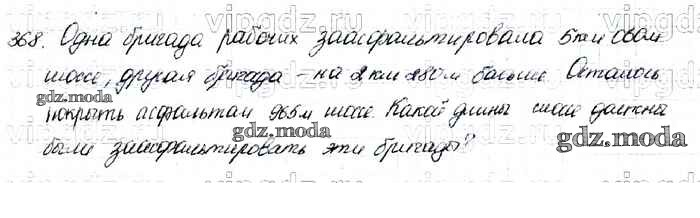 368. Одна бригада рабочих заасфальтировала 5 км
шоссе, другая бригада - на 2 км 280 м больше. Осталось
gdz.moda
покрыть асфальтом 965 м шоссе. Какой длины шоссе должны
gdz.moda
были заасфальтировать эти бригады?
gdz.moda
vipgdz.ru